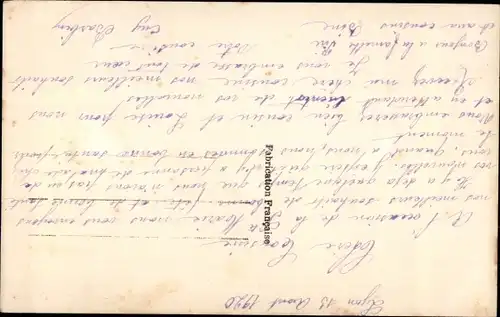 Lyon 13 Aout 1920
Chère Cousine
A l'occasion de la Ste Marie nous vous envoyons
nos meilleurs souhaits de bonne fête et de bonne santé
Il y a déjà quelque temps que nous n'avons pas eu de
vos nouvelles j'espère qu'il n'y a personne de malade chez
vous, quand à nous nous sommes en bonne santé pour
le moment.
Vous embrasserez bien cousin et Louise pour nous
et en attendant bientot de vos nouvelles
Recevez ma chère cousine nos meilleurs souhaits
Je vous embrasse de tout coeur
Votre cousine
Bonjour à la famille
et aux cousins
Fabrication Française